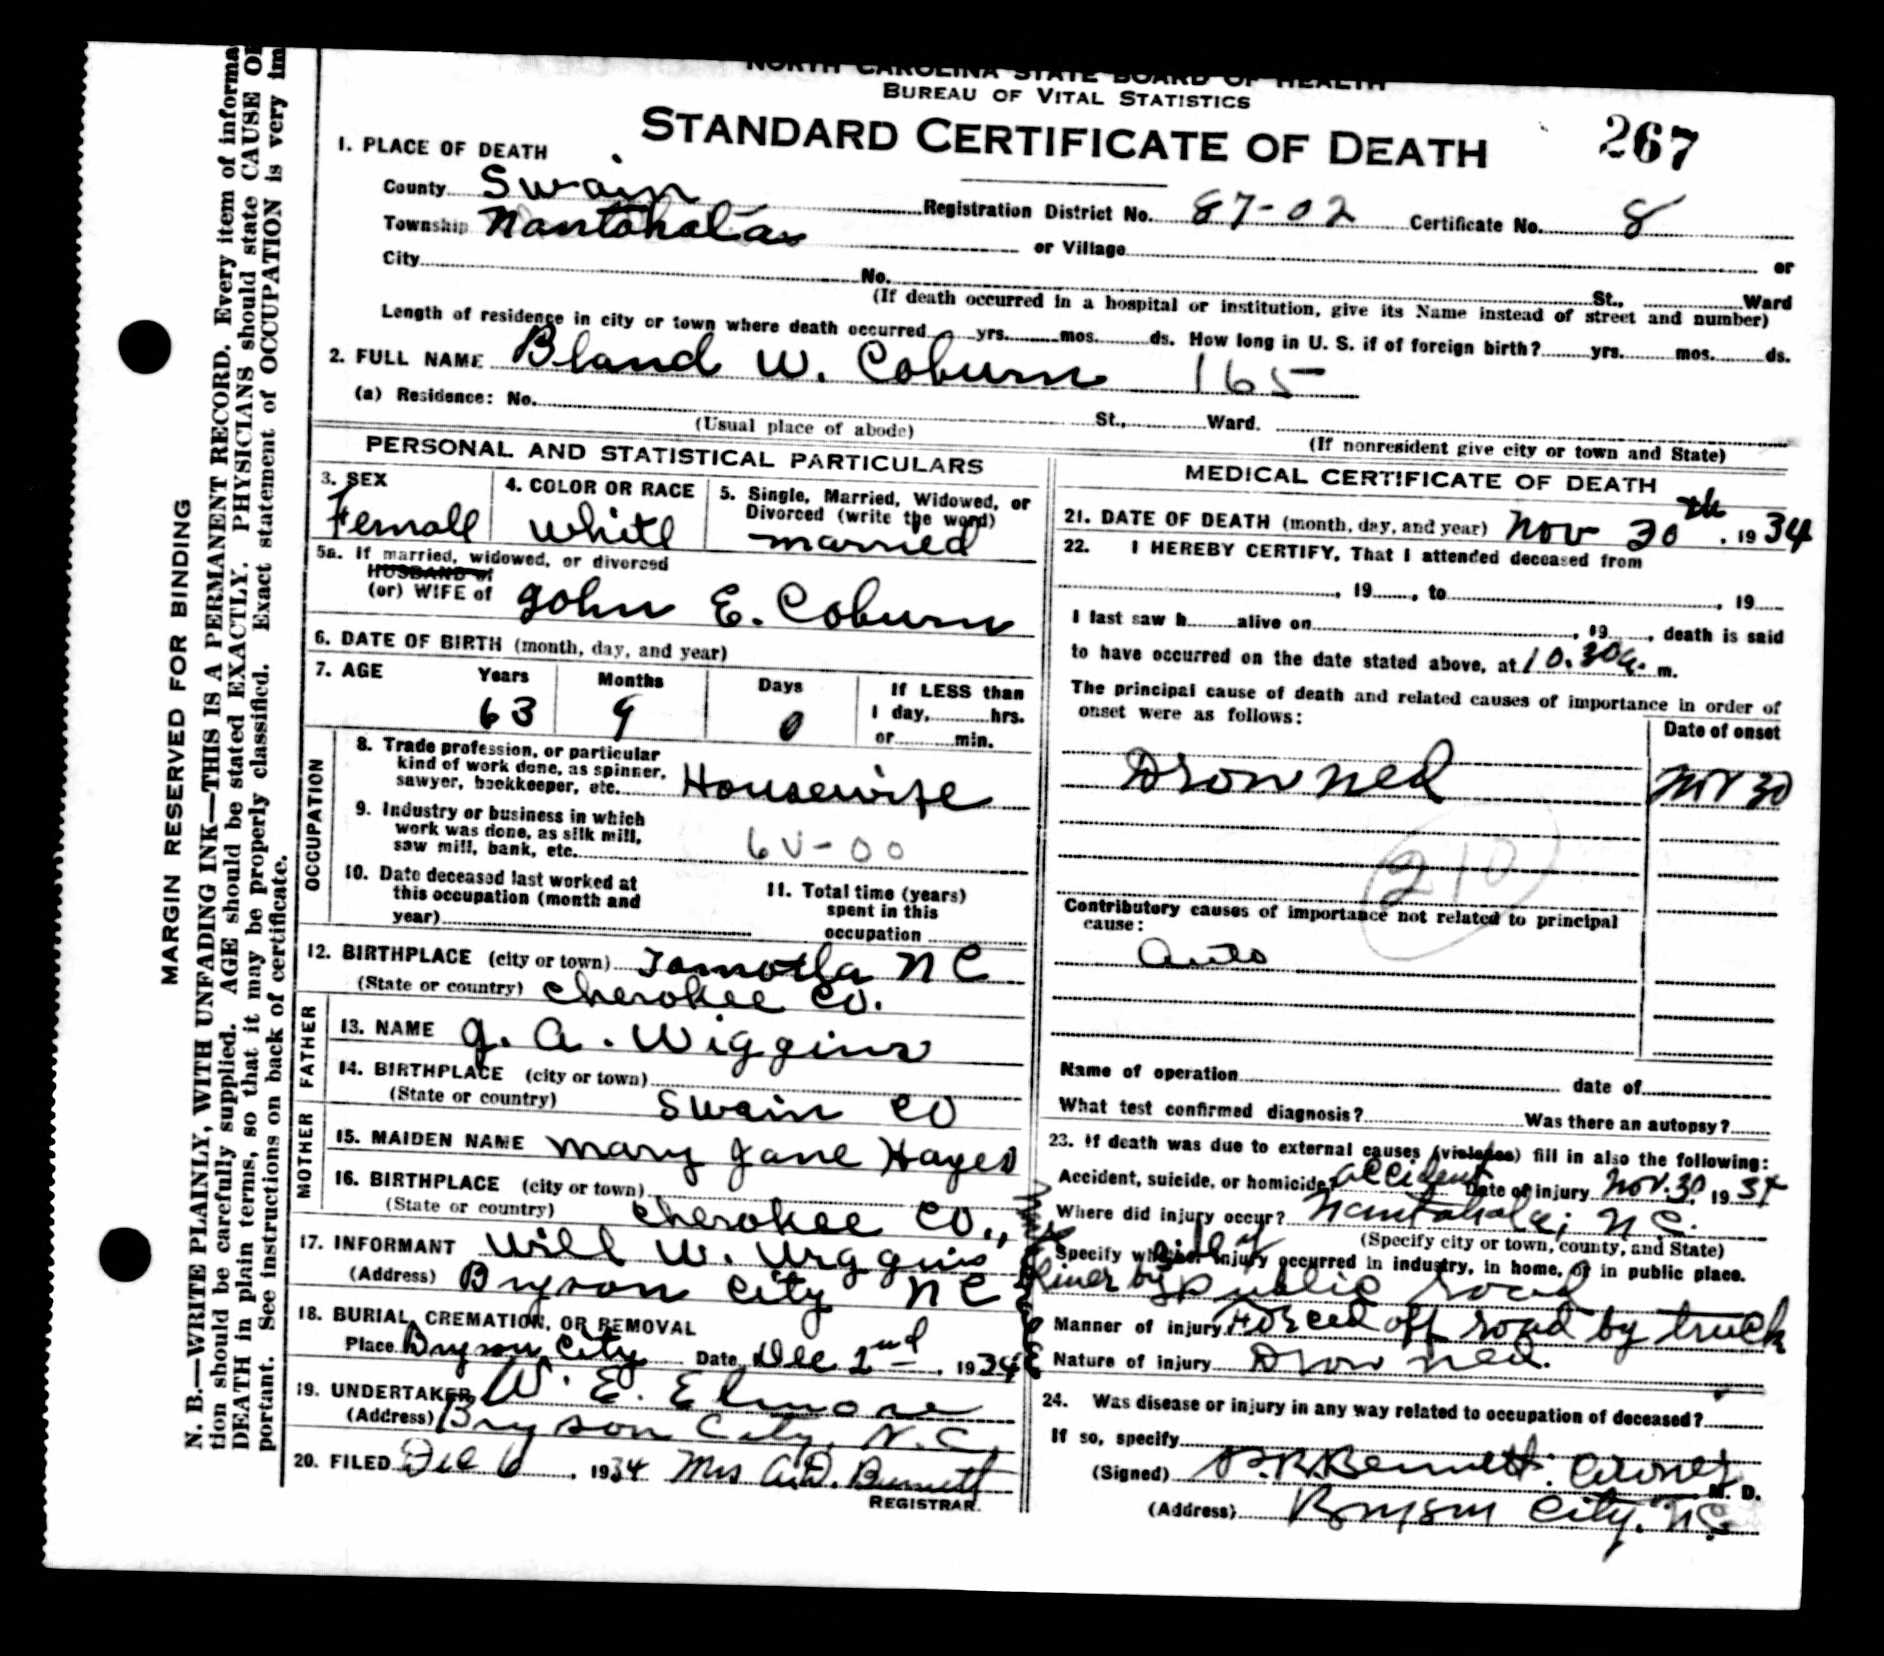 NORTH CAROLINA STATE BOARD OF HEALTH
BUREAU OF VITAL STATISTICS
STANDARD CERTIFICATE OF DEATH
267
1. PLACE OF DEATH
County Swain Registration District No. 87-02 Certificate No. 8
Township Nantahala or Village or
City No. St., Ward
(If death occurred in a hospital or institution, give its Name instead of street and number)
Length of residence in city or town where death occurred yrs. mos. ds. How long in U. S. if of foreign birth? yrs. mos. ds.
2. FULL NAME Bland W. Coburn 165
(a) Residence: No. St., Ward.
(Usual place of abode) (If nonresident give city or town and State)
PERSONAL AND STATISTICAL PARTICULARS
3. SEX
Female
4. COLOR OR RACE
White
5. Single, Married, Widowed, or
Divorced (write the word)
married
5a. If married, widowed, or divorced
HUSBAND of
(or) WIFE of John E. Coburn
6. DATE OF BIRTH (month, day, and year)
7. AGE Years Months Days If LESS than
63 9 0 1 day, hrs.
or min.
OCCUPATION
8. Trade profession, or particular
kind of work done, as spinner,
sawyer, bookkeeper, etc. Housewife
9. Industry or business in which
work was done, as silk mill,
saw mill, bank, etc. 6V-00
10. Date deceased last worked at
this occupation (month and
year)
11. Total time (years)
spent in this
occupation
12. BIRTHPLACE (city or town) Tomotla N C
(State or country) Cherokee Co.
FATHER
13. NAME J. A. Wiggins
14. BIRTHPLACE (city or town)
(State or country) Swain Co
MOTHER
15. MAIDEN NAME Mary Jane Hayes
16. BIRTHPLACE (city or town)
(State or country) Cherokee Co.,
17. INFORMANT Will W. Wiggins
(Address) Bryson City N C
18. BURIAL, CREMATION, OR REMOVAL
Place Bryson City Date Dec 2nd, 1934
19. UNDERTAKER W. E. Elmore
(Address) Bryson City, N.C.
20. FILED Dec 6, 1934 Mrs A.D. Burnett
REGISTRAR.
MEDICAL CERTIFICATE OF DEATH
21. DATE OF DEATH (month, day, and year) Nov 30th, 1934
22. I HEREBY CERTIFY, That I attended deceased from
, 19 , to , 19
I last saw h alive on , 19 , death is said
to have occurred on the date stated above, at 10.30a. m.
The principal cause of death and related causes of importance in order of
onset were as follows:
Date of onset
Drowned Nov 30
210
Contributory causes of importance not related to principal
cause:
Auto
Name of operation date of
What test confirmed diagnosis? Was there an autopsy?
23. If death was due to external causes (violence) fill in also the following:
Accident, suicide, or homicide? accident Date of injury Nov. 30, 1934
Where did injury occur? Nantahala, N.C.
(Specify city or town, county, and State)
Specify whether injury occurred in industry, in home, or in public place.
River by side of public road
Manner of injury Forced off road by truck
Nature of injury Drowned.
24. Was disease or injury in any way related to occupation of deceased?
If so, specify
(Signed) P.R. Bennett. Coroner M. D.
(Address) Bryson City, N.C.
MARGIN RESERVED FOR BINDING
N. B.—WRITE PLAINLY, WITH UNFADING INK—THIS IS A PERMANENT RECORD. Every item of informa
tion should be carefully supplied. AGE should be stated EXACTLY. PHYSICIANS should state CAUSE OF
DEATH in plain terms, so that it may be properly classified. Exact statement of OCCUPATION is very im
portant. See instructions on back of certificate.